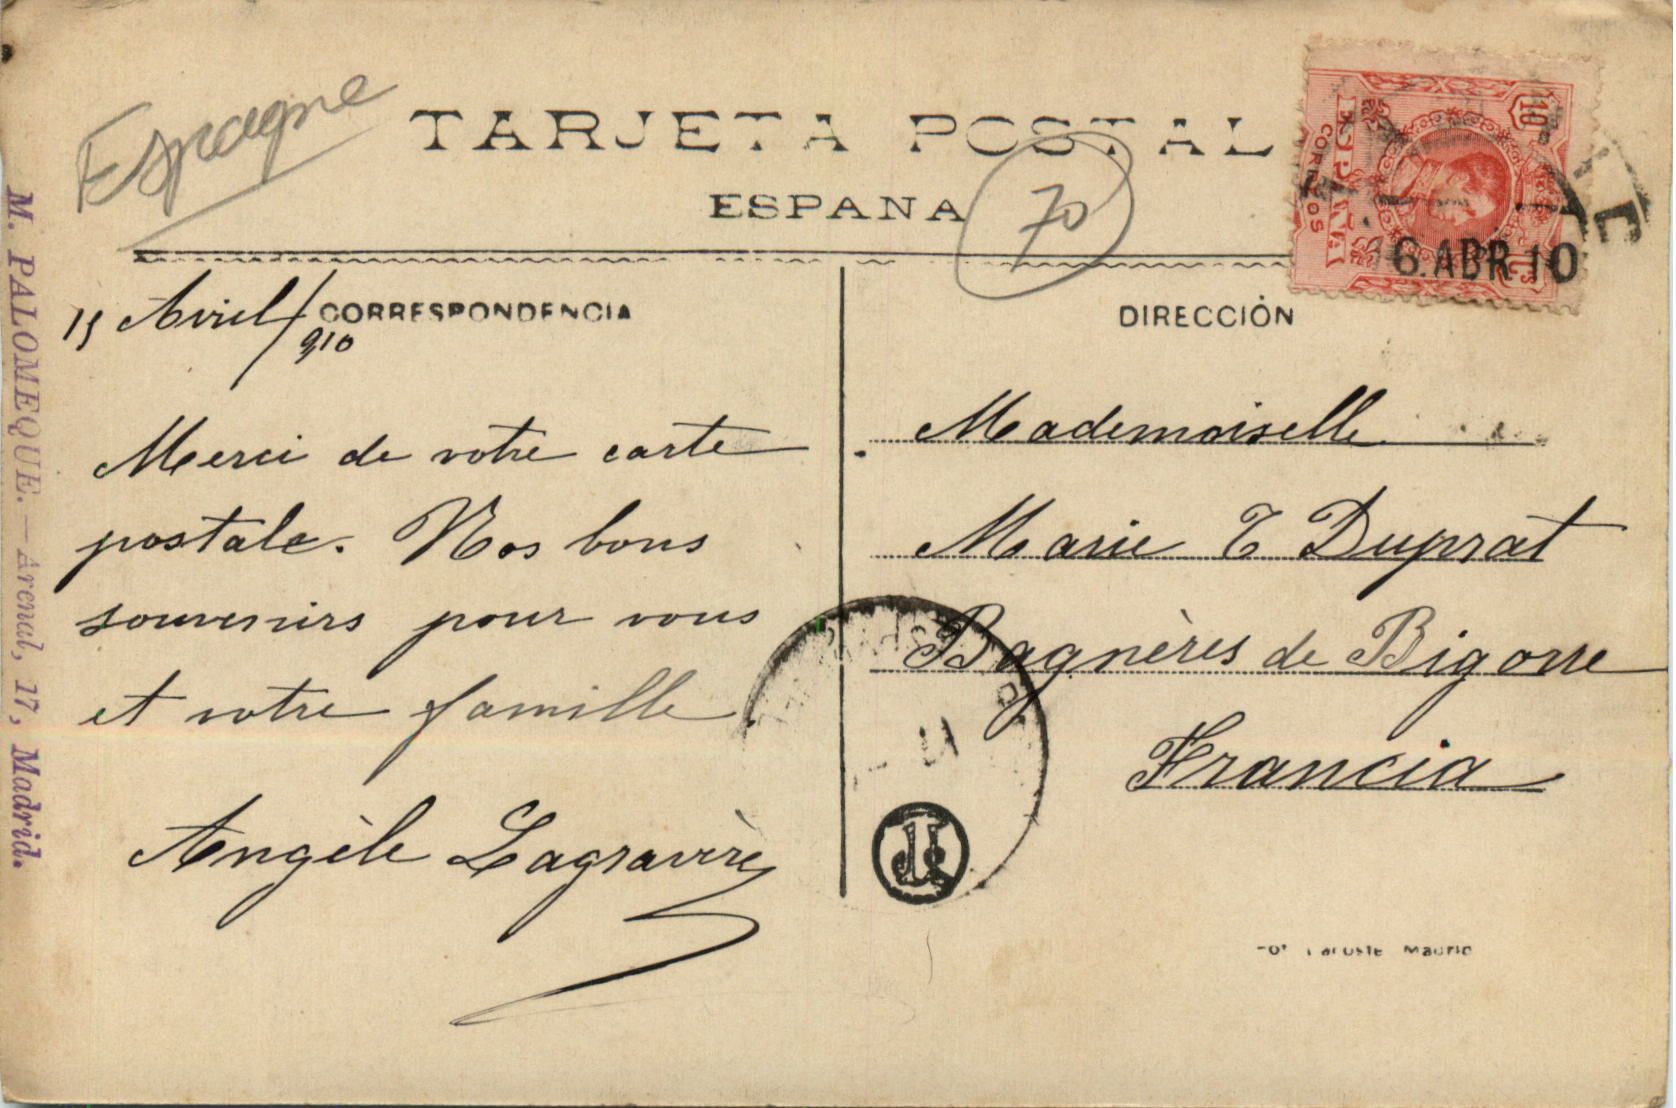 Espagne
TARJETA POSTAL
ESPAÑA
70
10
ESPAÑA
CORREOS
6.ABR 10
M. PALOMEQUE.—Arenal, 17, Madrid.
CORRESPONDENCIA
15 Avril/910
Merci de votre carte
postale. Nos bons
souvenirs pour vous
et votre famille.
Angèle Lagravère
DIRECCIÓN
Mademoiselle
Marie T Duprat
Bagnères de Bigorre
Francia
Fot Lacoste Madrid